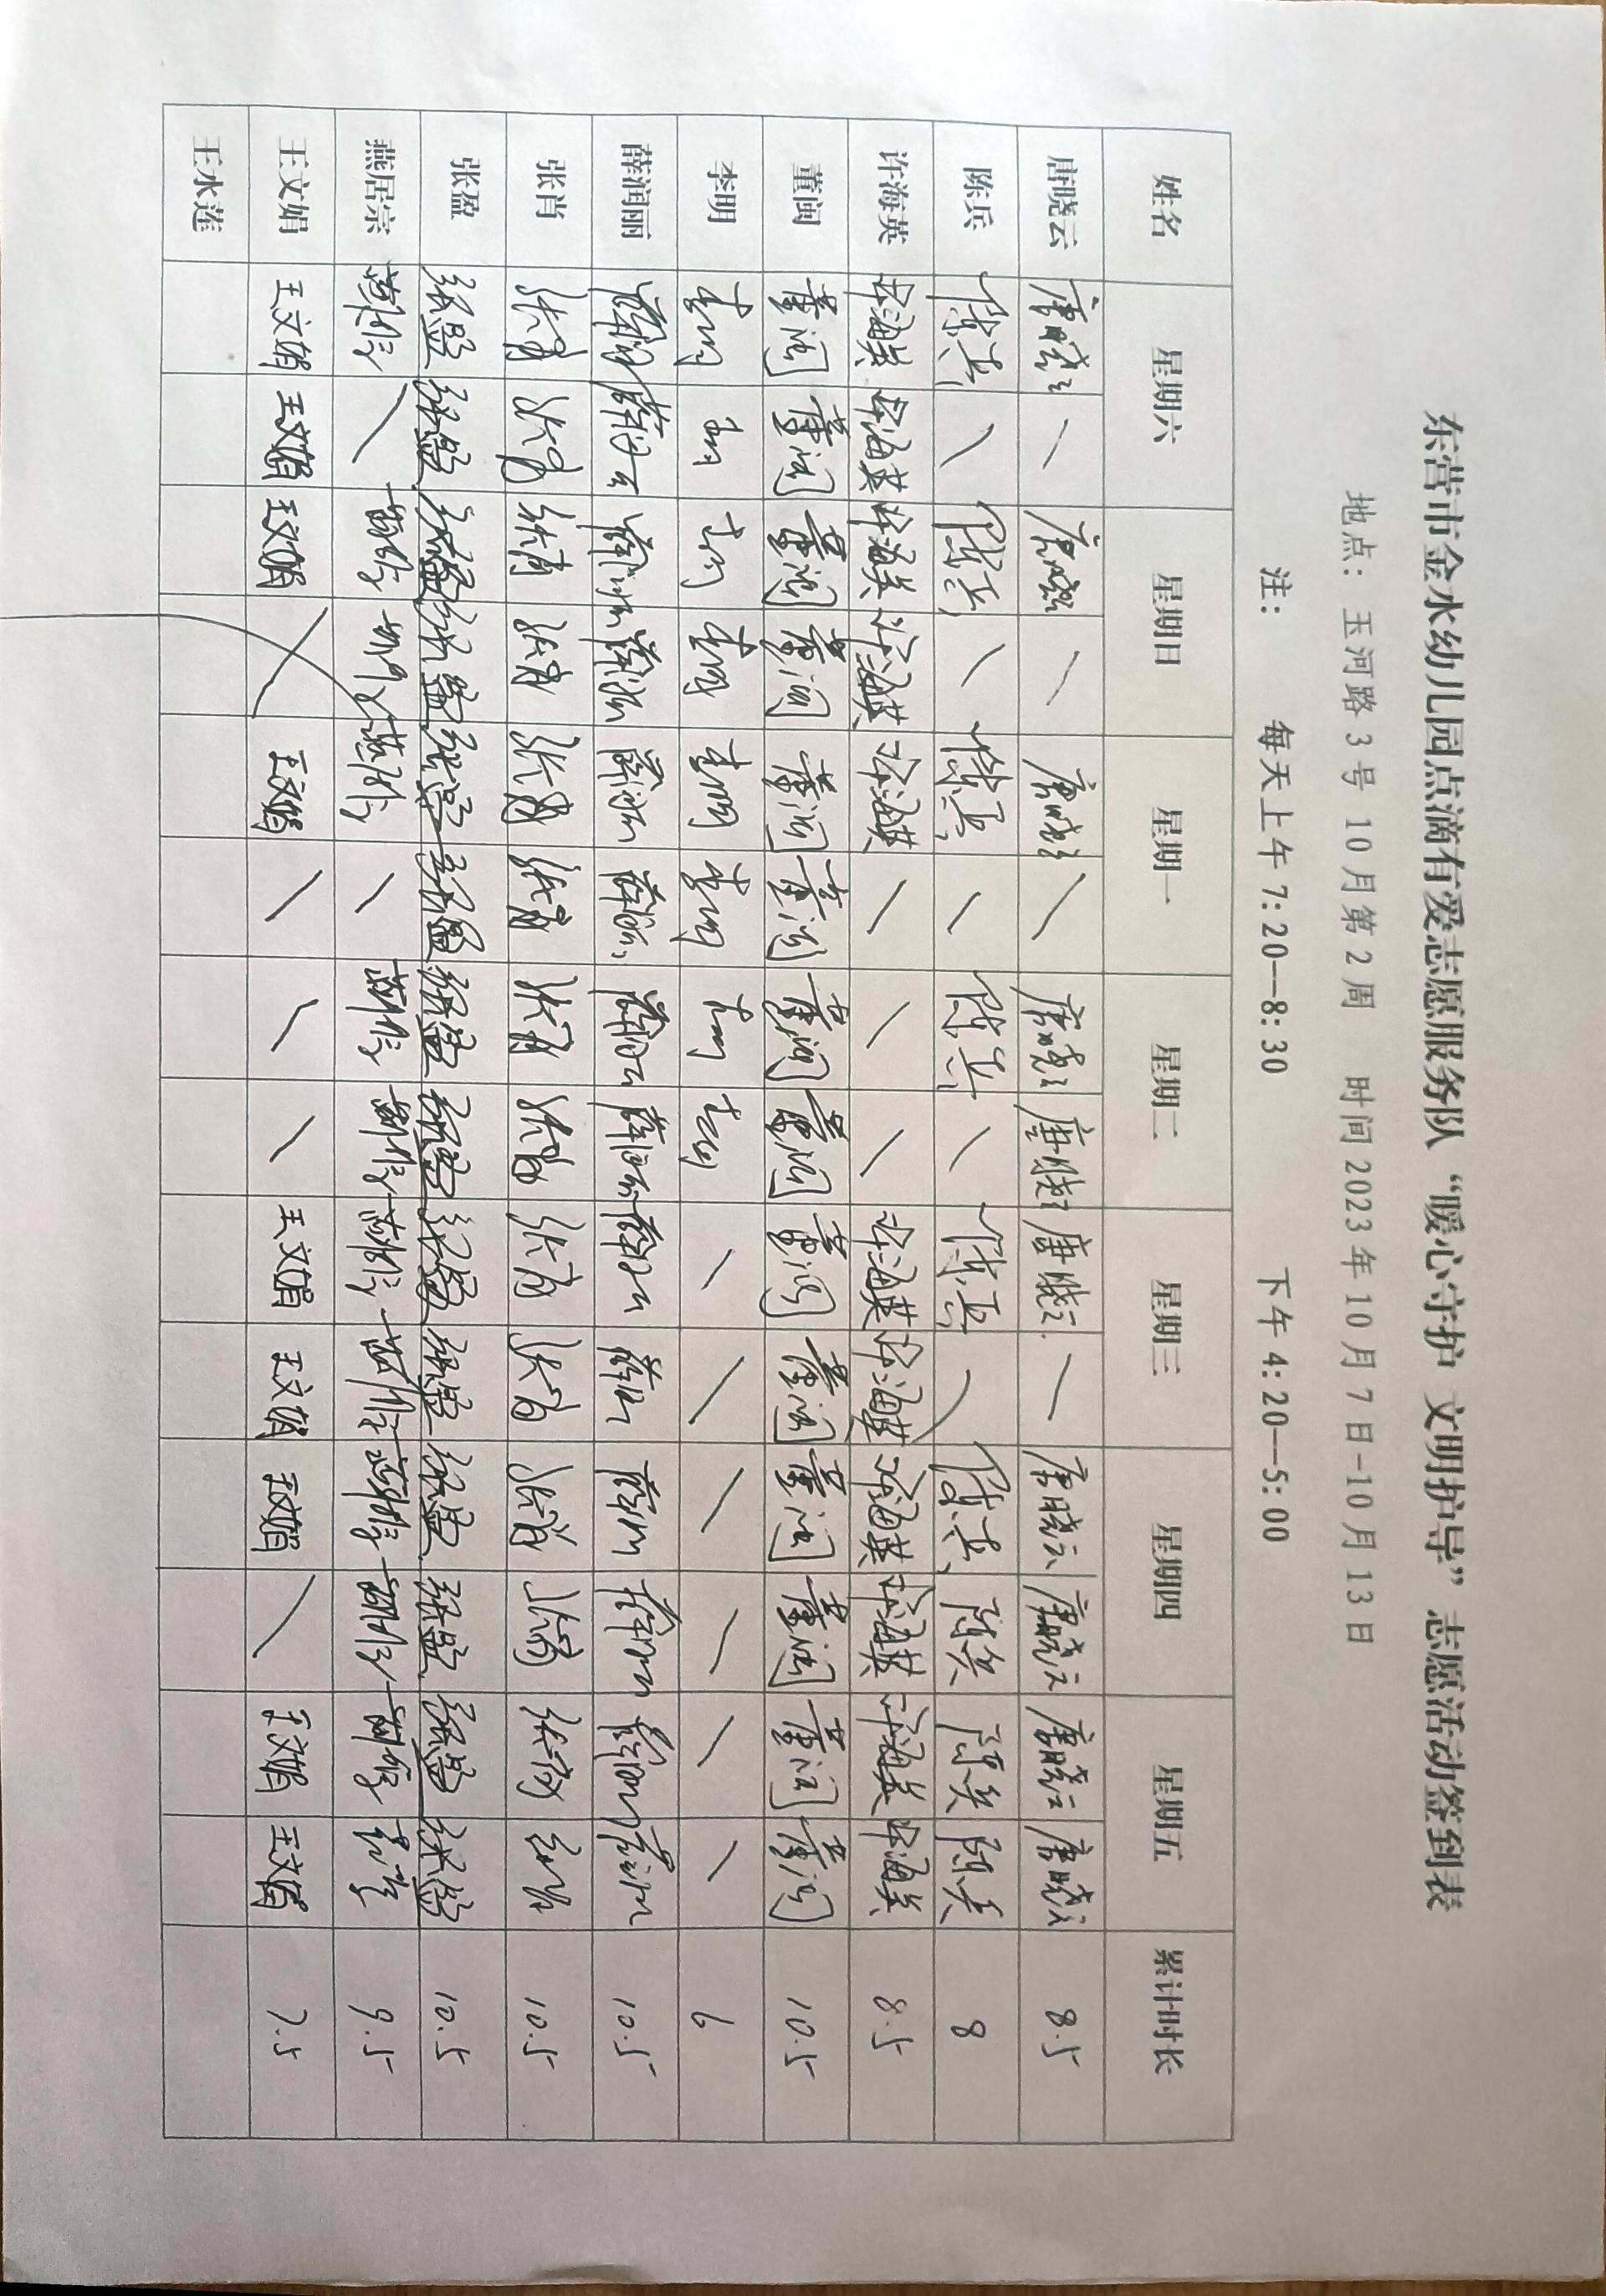 东营市金水幼儿园点滴有爱志愿服务队“暖心守护 文明护导”志愿活动签到表
地点：玉河路3号 10月第2周 时间2023年10月7日-10月13日
注： 每天上午7:20—8:30 下午4:20—5:00
姓名 星期六 星期日 星期一 星期二 星期三 星期四 星期五 累计时长
唐晓云 唐晓云 / 唐晓云 / 唐晓云 / 唐晓云 唐晓云 唐晓云 / 唐晓云 唐晓云 唐晓云 唐晓云 8.5
陈兵 陈兵 / 陈兵 / 陈兵 / 陈兵 / 陈兵 / 陈兵 陈兵 陈兵 陈兵 8
许海英 许海英 许海英 许海英 许海英 许海英 / / / 许海英 许海英 许海英 许海英 许海英 许海英 8.5
董闽 董闽 董闽 董闽 董闽 董闽 董闽 董闽 董闽 董闽 董闽 董闽 董闽 董闽 董闽 10.5
李明 李明 李明 李明 李明 李明 李明 李明 李明 / / / / / / 6
薛润丽 薛润丽 薛润丽 薛润丽 薛润丽 薛润丽 薛润丽 薛润丽 薛润丽 薛润丽 薛润丽 薛润丽 薛润丽 薛润丽 薛润丽 10.5
张肖 张肖 张肖 张肖 张肖 张肖 张肖 张肖 张肖 张肖 张肖 张肖 张肖 张肖 张肖 10.5
张盈 张盈 张盈 张盈 张盈 张盈 张盈 张盈 张盈 张盈 张盈 张盈 张盈 张盈 张盈 10.5
燕居宗 燕居宗 / 燕居宗 燕居宗 / 燕居宗 燕居宗 燕居宗 燕居宗 燕居宗 燕居宗 燕居宗 9.5
王文娟 王文娟 王文娟 王文娟 / 王文娟 / / / 王文娟 王文娟 王文娟 / 王文娟 王文娟 7.5
王水莲